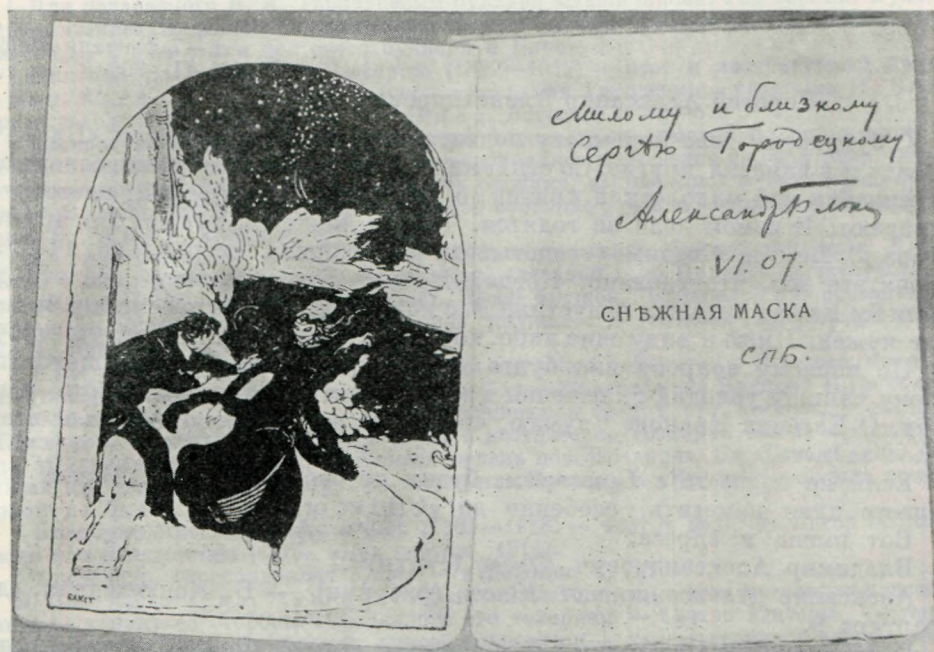 Милому и близкому
Сергѣю Городецкому
Александр Блок
VI. 07.
СНѢЖНАЯ МАСКА
СПБ.
БАКСТ